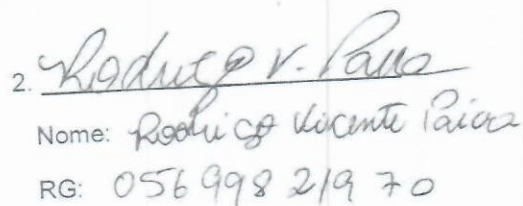 2. Rodrigo V. Paiva
Nome: Rodrigo Vicente Paiva
RG: 056 998 219 70